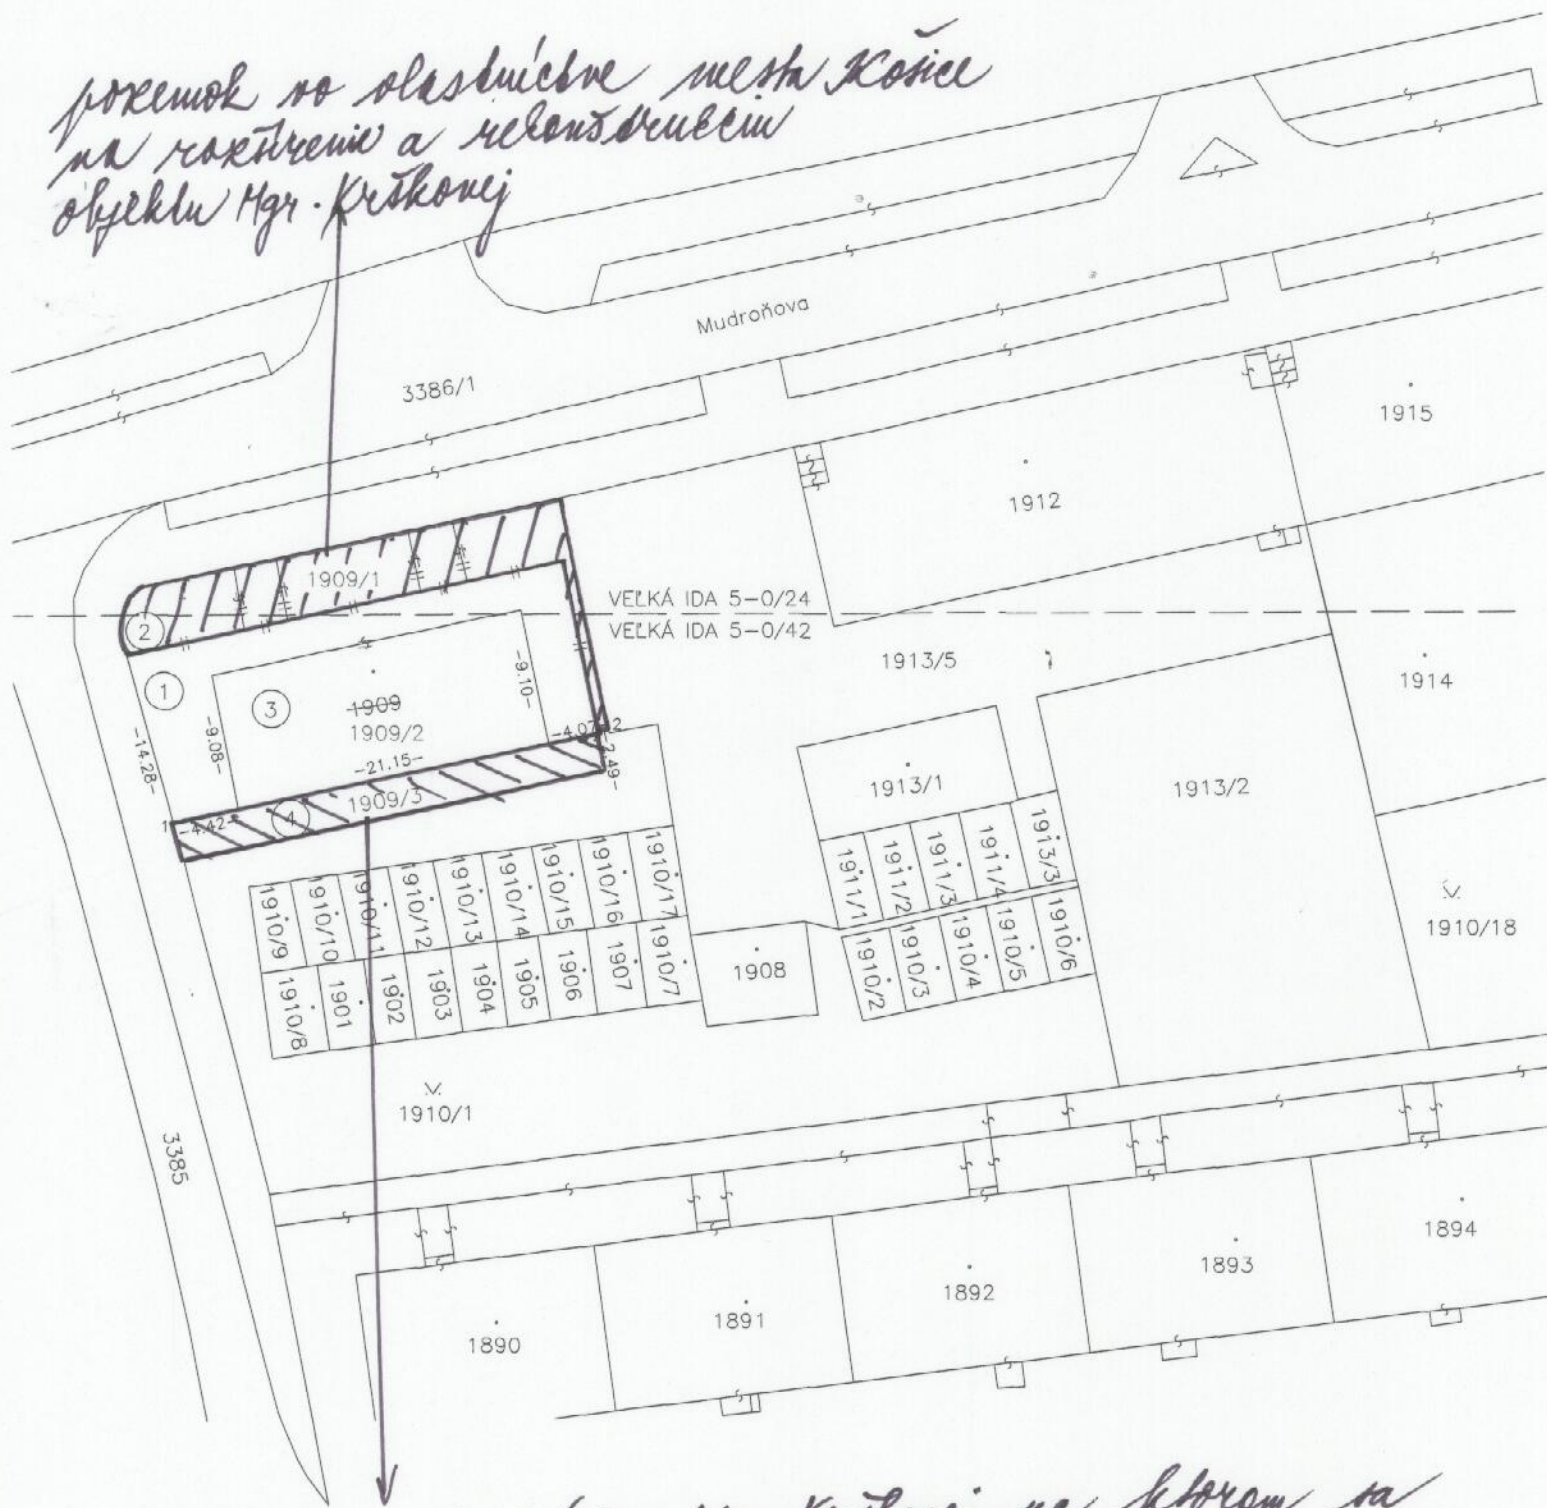 pozemok vo vlastníctve mesta Košice
na rozšírenie a rekonštrukciu
objektu Mgr. Krškovej
Mudroňova
3386/1
1915
1912
1909/1
VEĽKÁ IDA 5-0/24
VEĽKÁ IDA 5-0/42
2
1913/5
1914
1
3
1909
1909/2
-9.10-
-9.08-
-14.28-
-21.15-
1913/1
1913/2
1909/3
4
-4.42-
1910/9
1910/10
1910/11
1910/12
1910/13
1910/14
1910/15
1910/16
1910/17
1911/1
1911/2
1911/3
1911/4
1913/3
1910/8
1901
1902
1903
1904
1905
1906
1907
1910/7
1908
1910/2
1910/3
1910/4
1910/5
1910/6
1910/18
1910/1
3385
1890
1891
1892
1893
1894
na ktorom sa